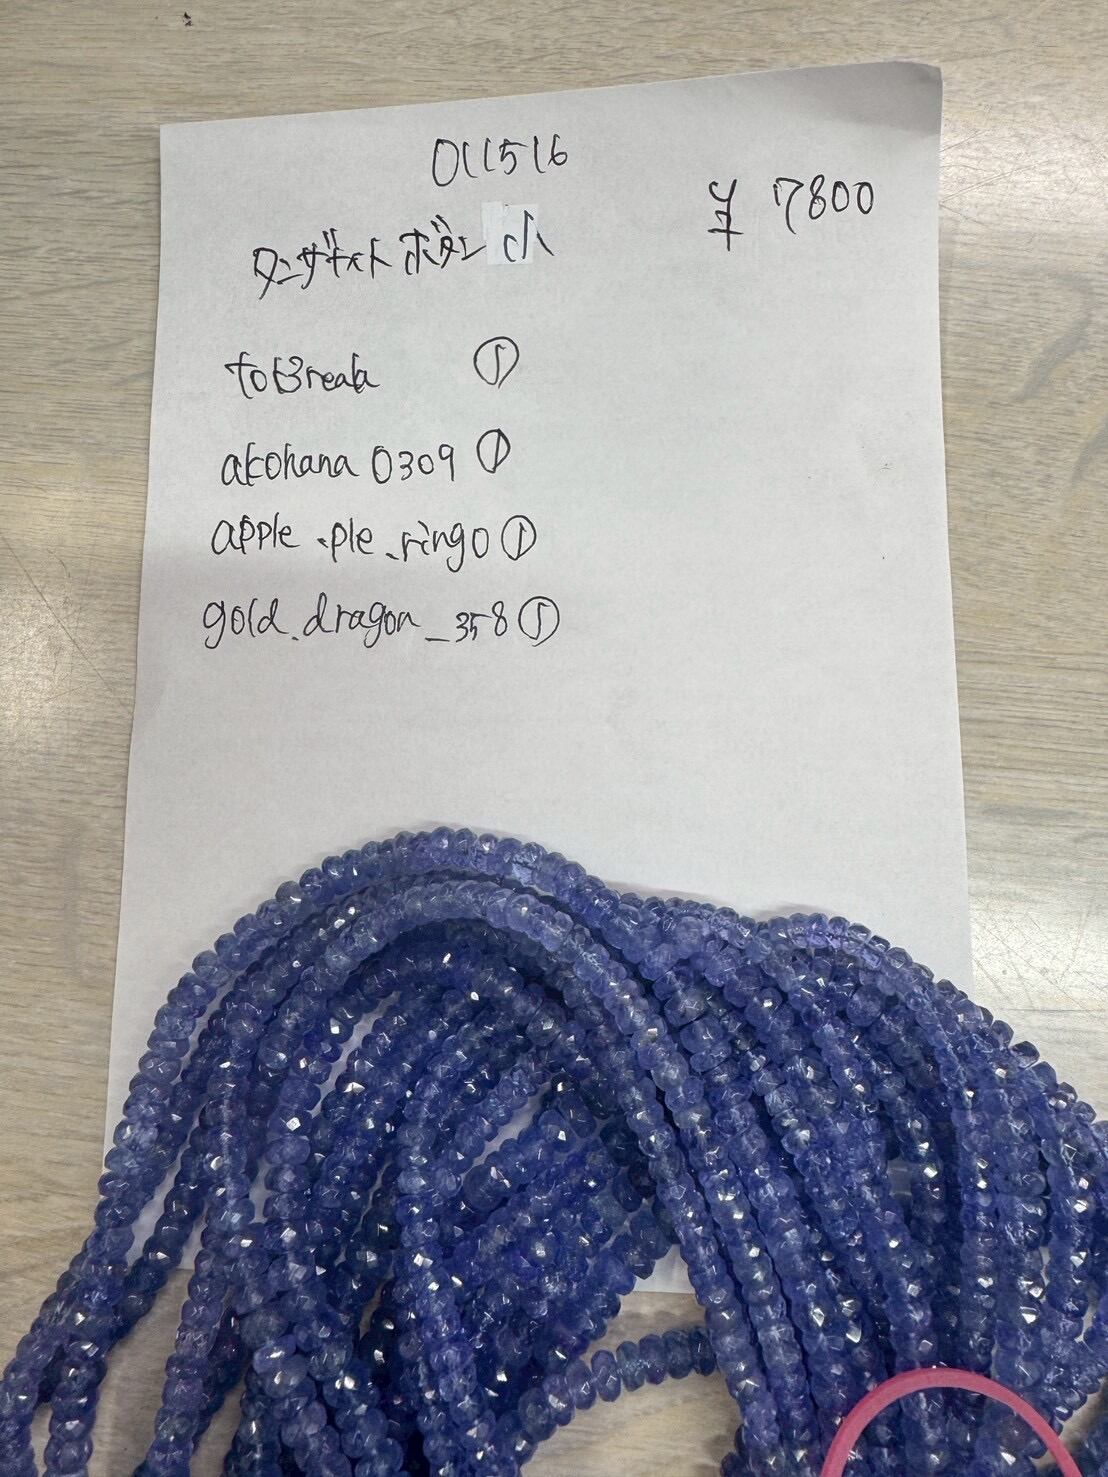 011516
¥ 7800
タンザナイト ボタン 小
toBreak ①
akohana0309 ①
apple.ple.ringo ①
gold.dragon_358 ①